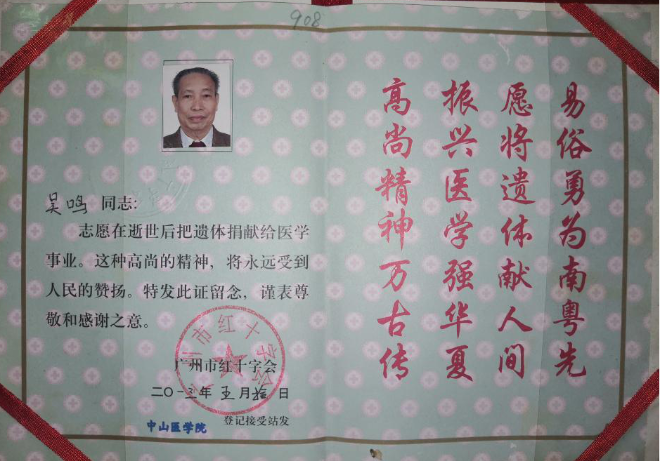 908
吴鸣 同志:
志愿在逝世后把遗体捐献给医学
事业。这种高尚的精神，将永远受到
人民的赞扬。特发此证留念，谨表尊
敬和感谢之意。
广州市红十字会
广州市红十字会
二〇一三年五月 日
中山医学院 登记接受站发
易俗勇为南粤先
愿将遗体献人间
振兴医学强华夏
高尚精神万古传